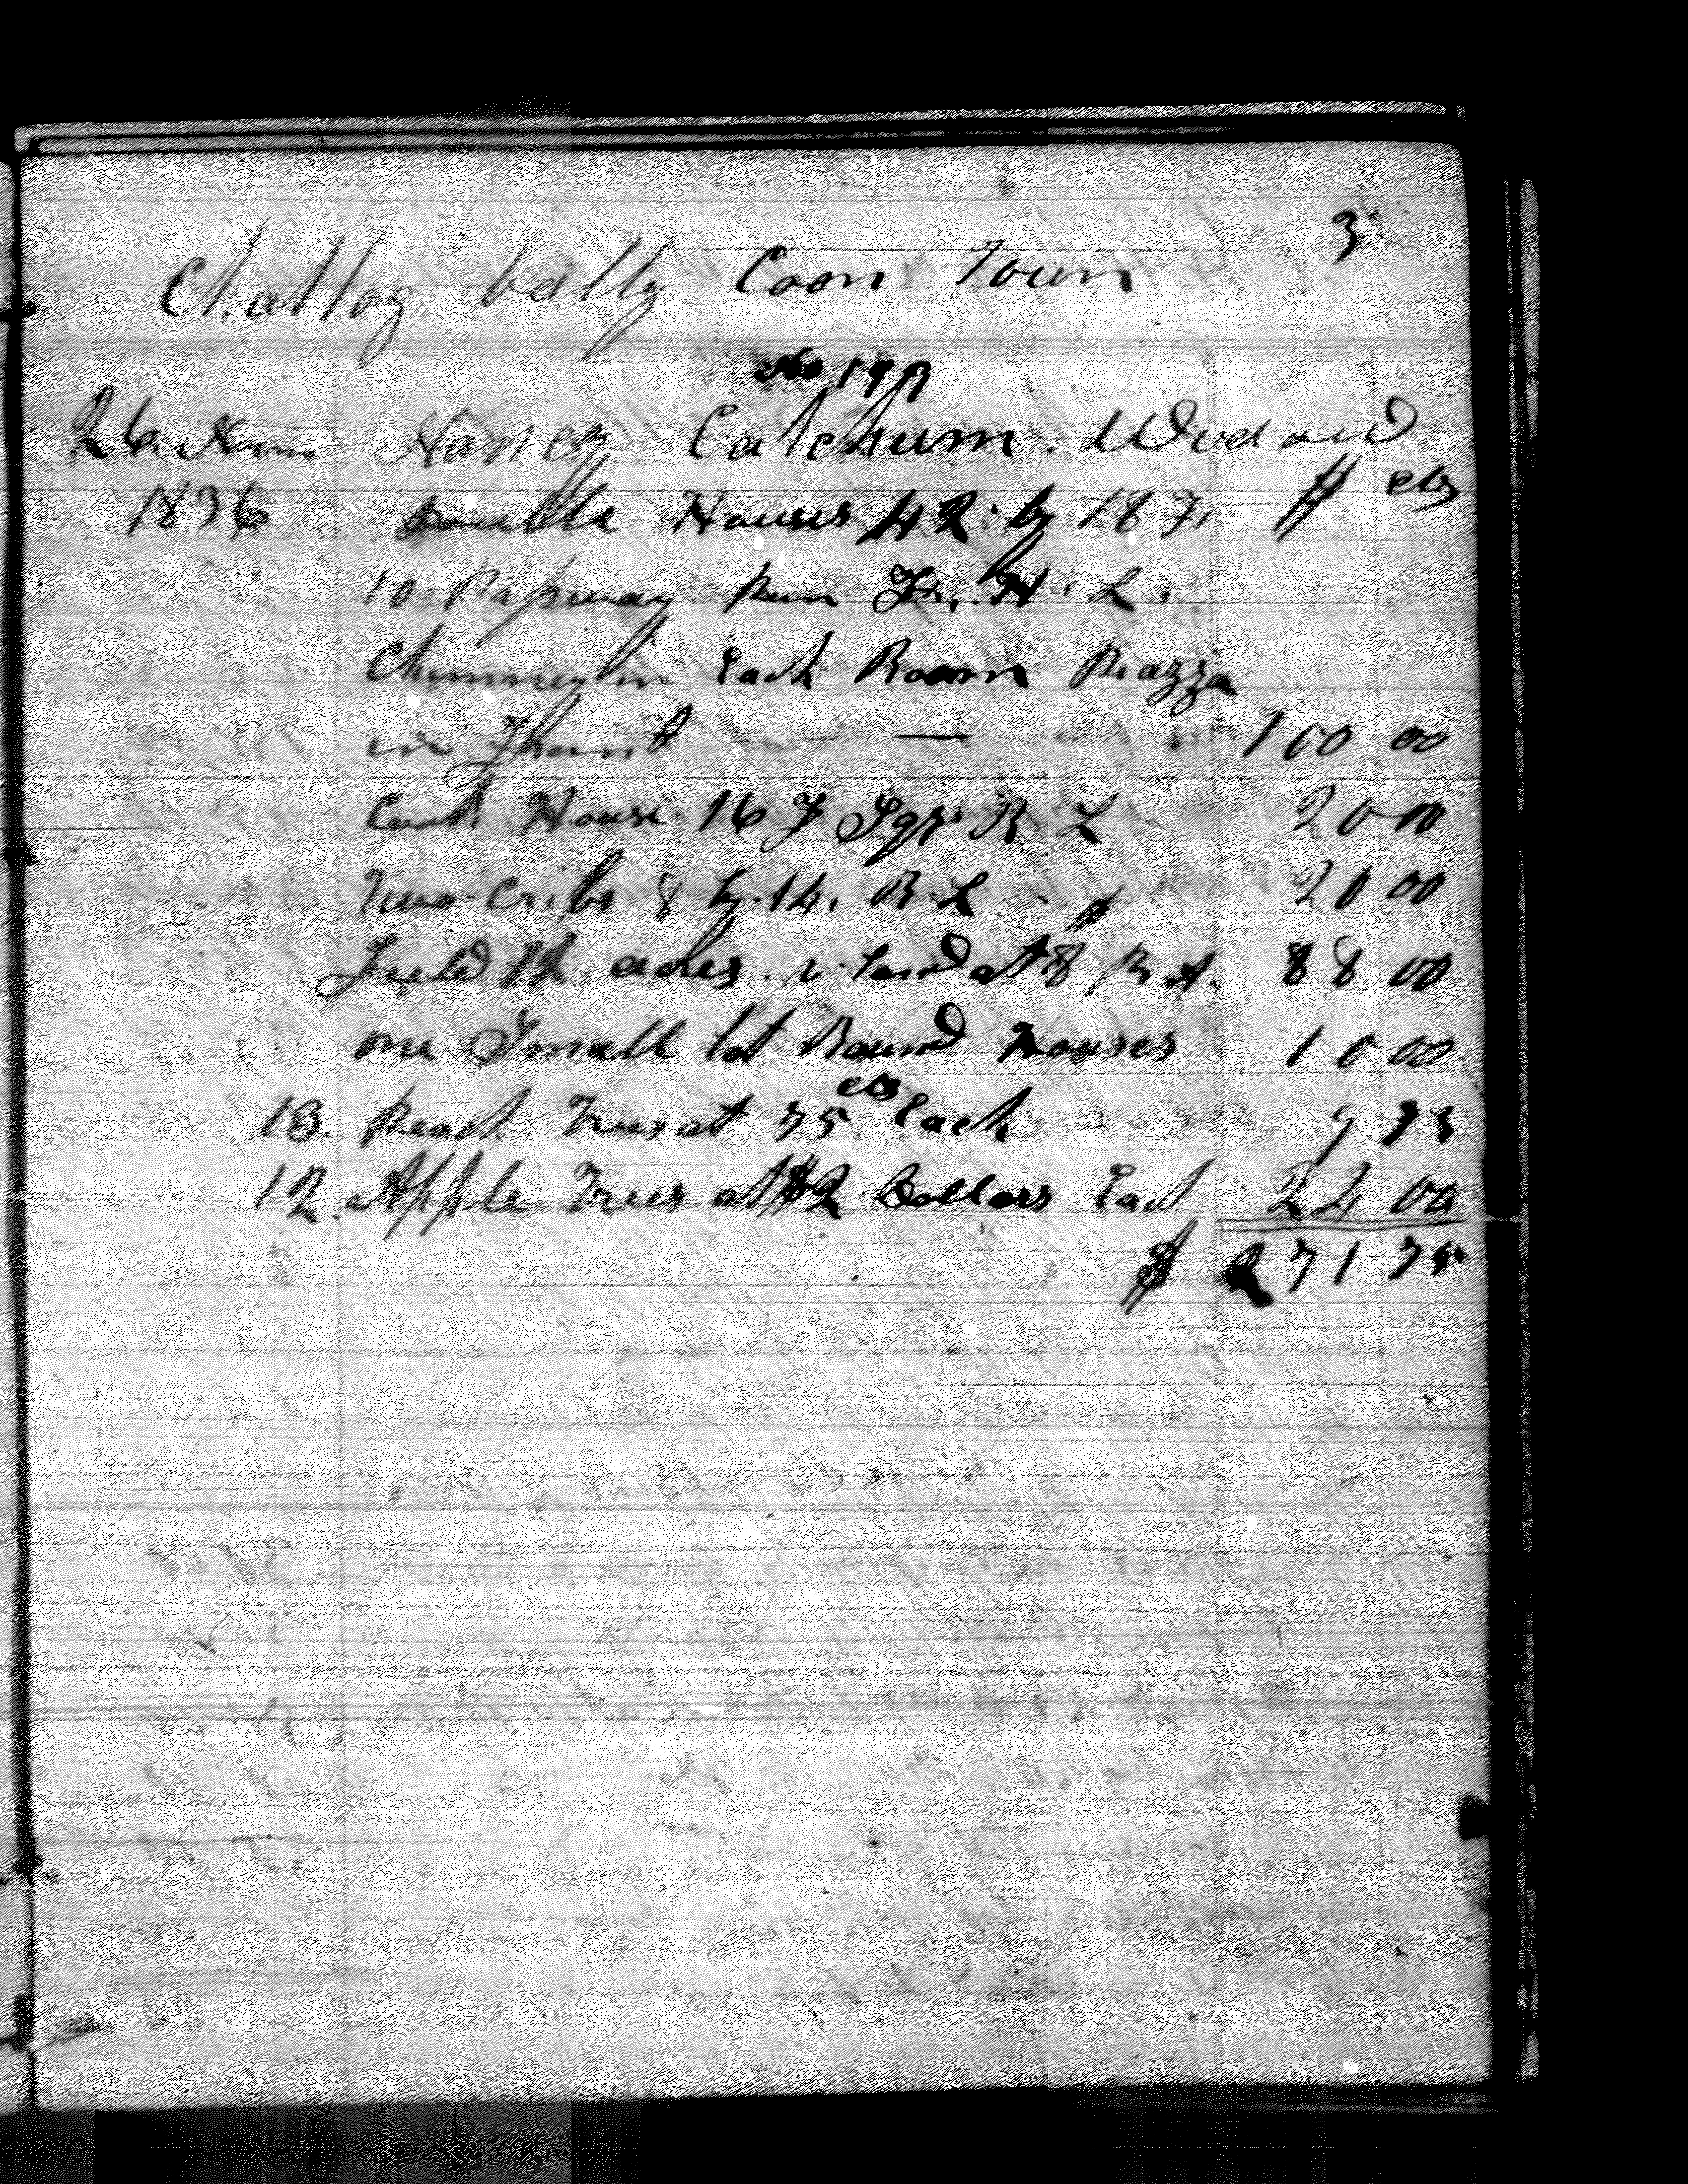 3
Chattog vally Coon Town
No 19
26. Novm Nancy Catchum. Widow
1836 Double Houses 42 by 18 F, $ cts
10 Passway Pun F. H. L.
Chimney in Each Room Piazza
in Front — 100 00
Cook House 16 F Sqr R L 20 00
Two Cribs 8 by 14, R L 20 00
Field 12 acres. land at 8 P A. 88 00
one Small lot Round Houses 10 00
13. Peach Trees at 75 cts Each 9 75
12. Apple Trees at $2 Dollars Each 24 00
$ 271 75